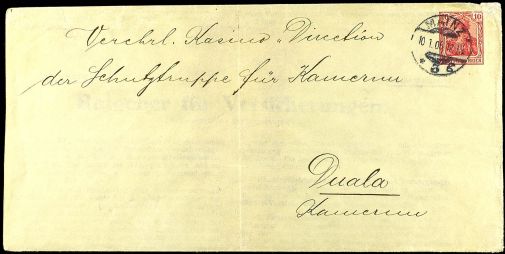 MAINZ
10
10.1.0
* 5 c
Verehrl. Kasino-Direction
der Schutztruppe für Kamerun
Ratgeber für Versicherungen
Duala
Kamerun